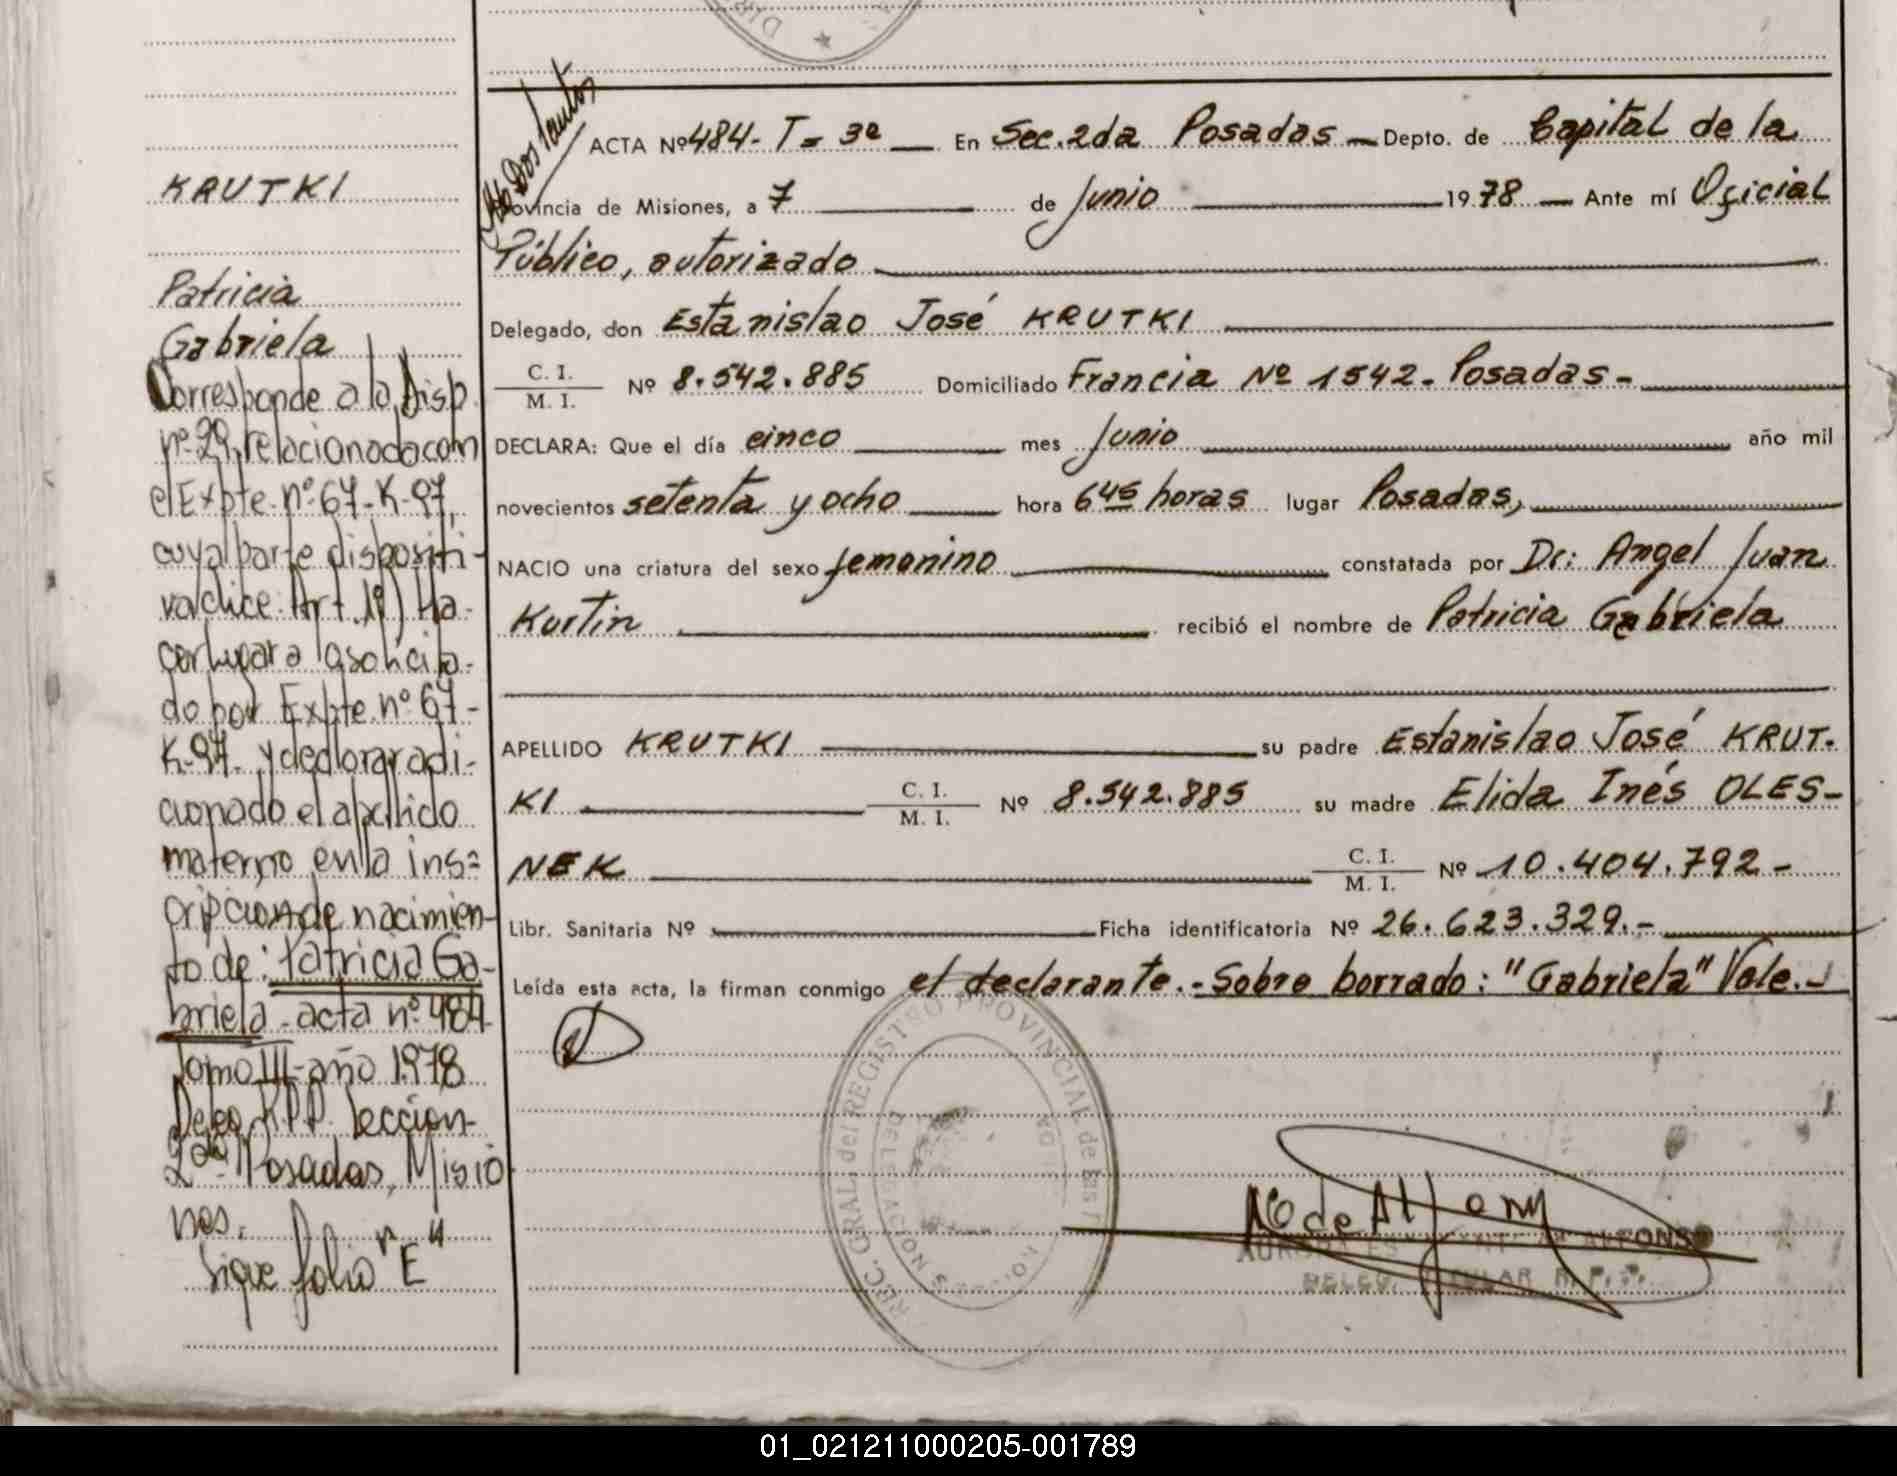 DIR
KRUTKI
Patricia
Gabriela
Corresponde a la Disp.
nº 29, relacionada con
el Expte. nº 67-K-97,
cuya parte dispositi-
va dice: Art. 1º) Ha-
cer lugar a lo solicita-
do por Expte. nº 67-
K-97. y declarar adi-
cionado el apellido
materno en la ins=
cripcion de nacimien-
to de: Patricia Ga-
briela - acta nº 484-
Tomo III - año 1978
Deleg. R.P.P. Seccion-
2da Posadas, Misio
nes.
Sigue folio "E"
Dos Santos
ACTA Nº 484- T= 3º En Sec. 2da Posadas Depto. de Capital de la
Provincia de Misiones, a 7 de Junio 1978 Ante mí Oficial
Público, autorizado
Delegado, don Estanislao José KRUTKI
C. I.
M. I. Nº 8.542.885 Domiciliado Francia Nº 1542. Posadas-
DECLARA: Que el día cinco mes Junio año mil
novecientos setenta y ocho hora 6 45 horas lugar Posadas,
NACIO una criatura del sexo femenino constatada por Dr: Angel Juan
Kurtin recibió el nombre de Patricia Gabriela
APELLIDO KRUTKI su padre Estanislao José KRUT-
KI C. I.
M. I. Nº 8.542.885 su madre Elida Inés OLES-
NEK C. I.
M. I. Nº 10.404.792-
Libr. Sanitaria Nº Ficha identificatoria Nº 26.623.329.-
Leída esta acta, la firman conmigo el declarante.- Sobre borrado: "Gabriela" Vale.-
REGISTRO PROVINCIAL de las P
GRAL. del
DELEGACION
Nº de Alfons
ALFONSO
DELEG. TITULAR R.P.P.
01_021211000205-001789